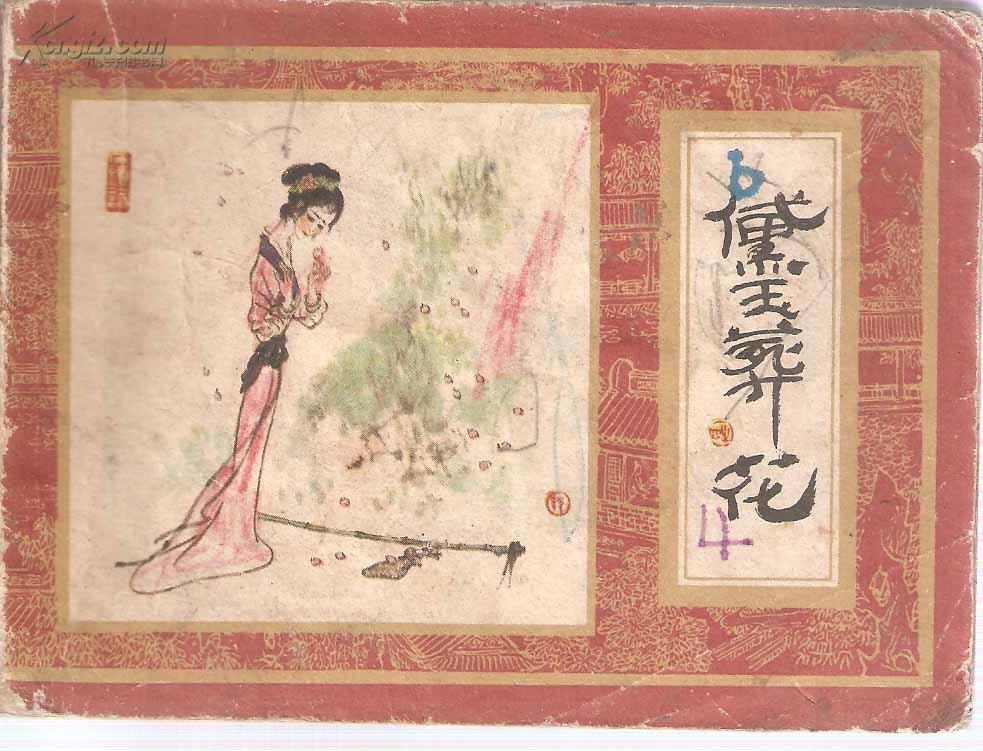 Kongfz.com
孔夫子旧书网
黛玉葬花
b
4